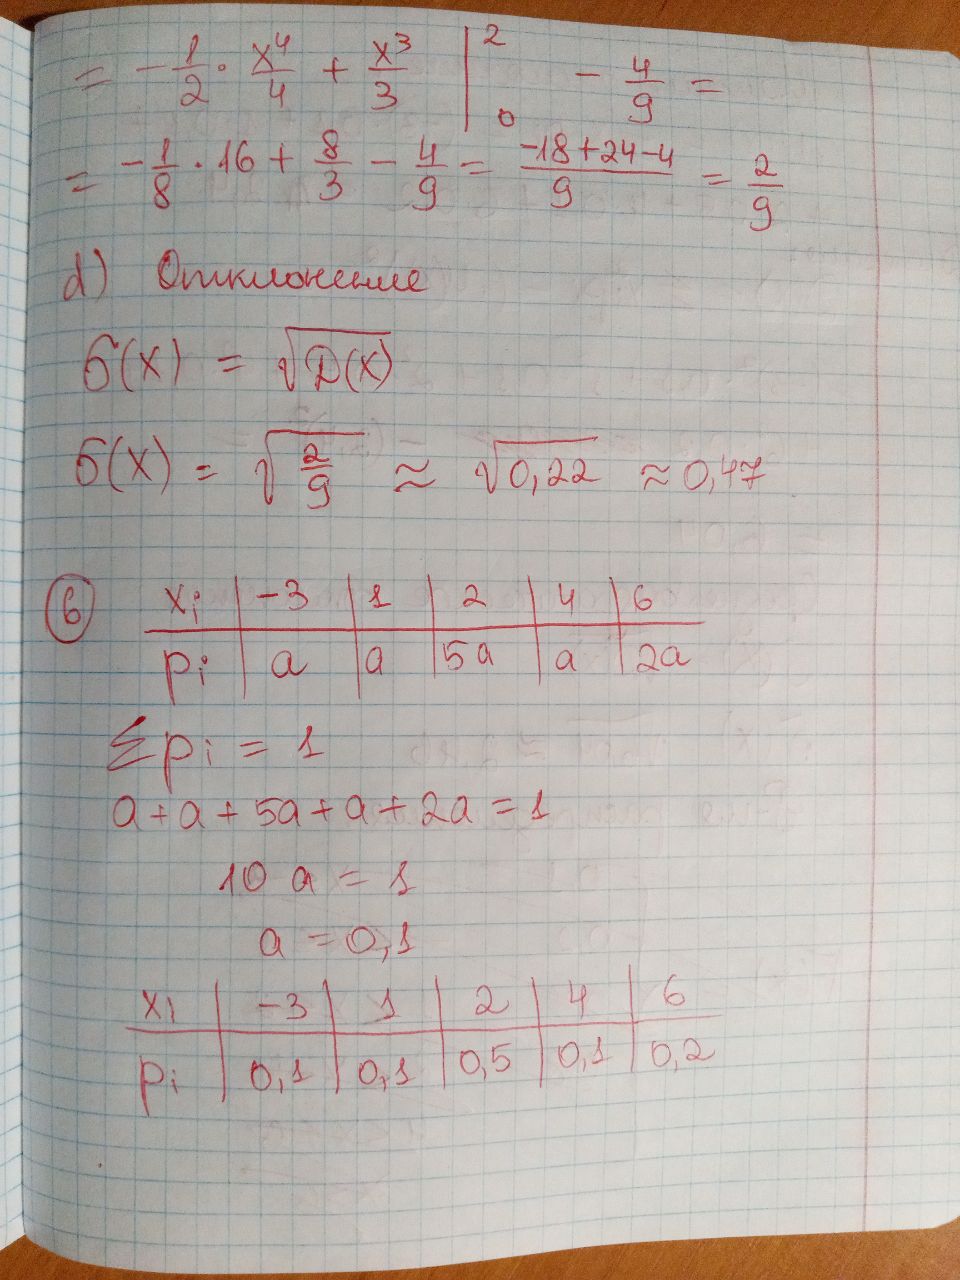 = -1/2 · x⁴/4 + x³/3 |₀² - 4/9 =
= -1/8 · 16 + 8/3 - 4/9 = (-18+24-4)/9 = 2/9
d) Отклонение
σ(X) = √D(X)
σ(X) = √(2/9) ≈ √0,22 ≈ 0,47
6
xᵢ | -3 | 1 | 2 | 4 | 6
pᵢ | a | a | 5a | a | 2a
Σpᵢ = 1
a+a+5a+a+2a=1
10a = 1
a = 0,1
xᵢ | -3 | 1 | 2 | 4 | 6
pᵢ | 0,1 | 0,1 | 0,5 | 0,1 | 0,2